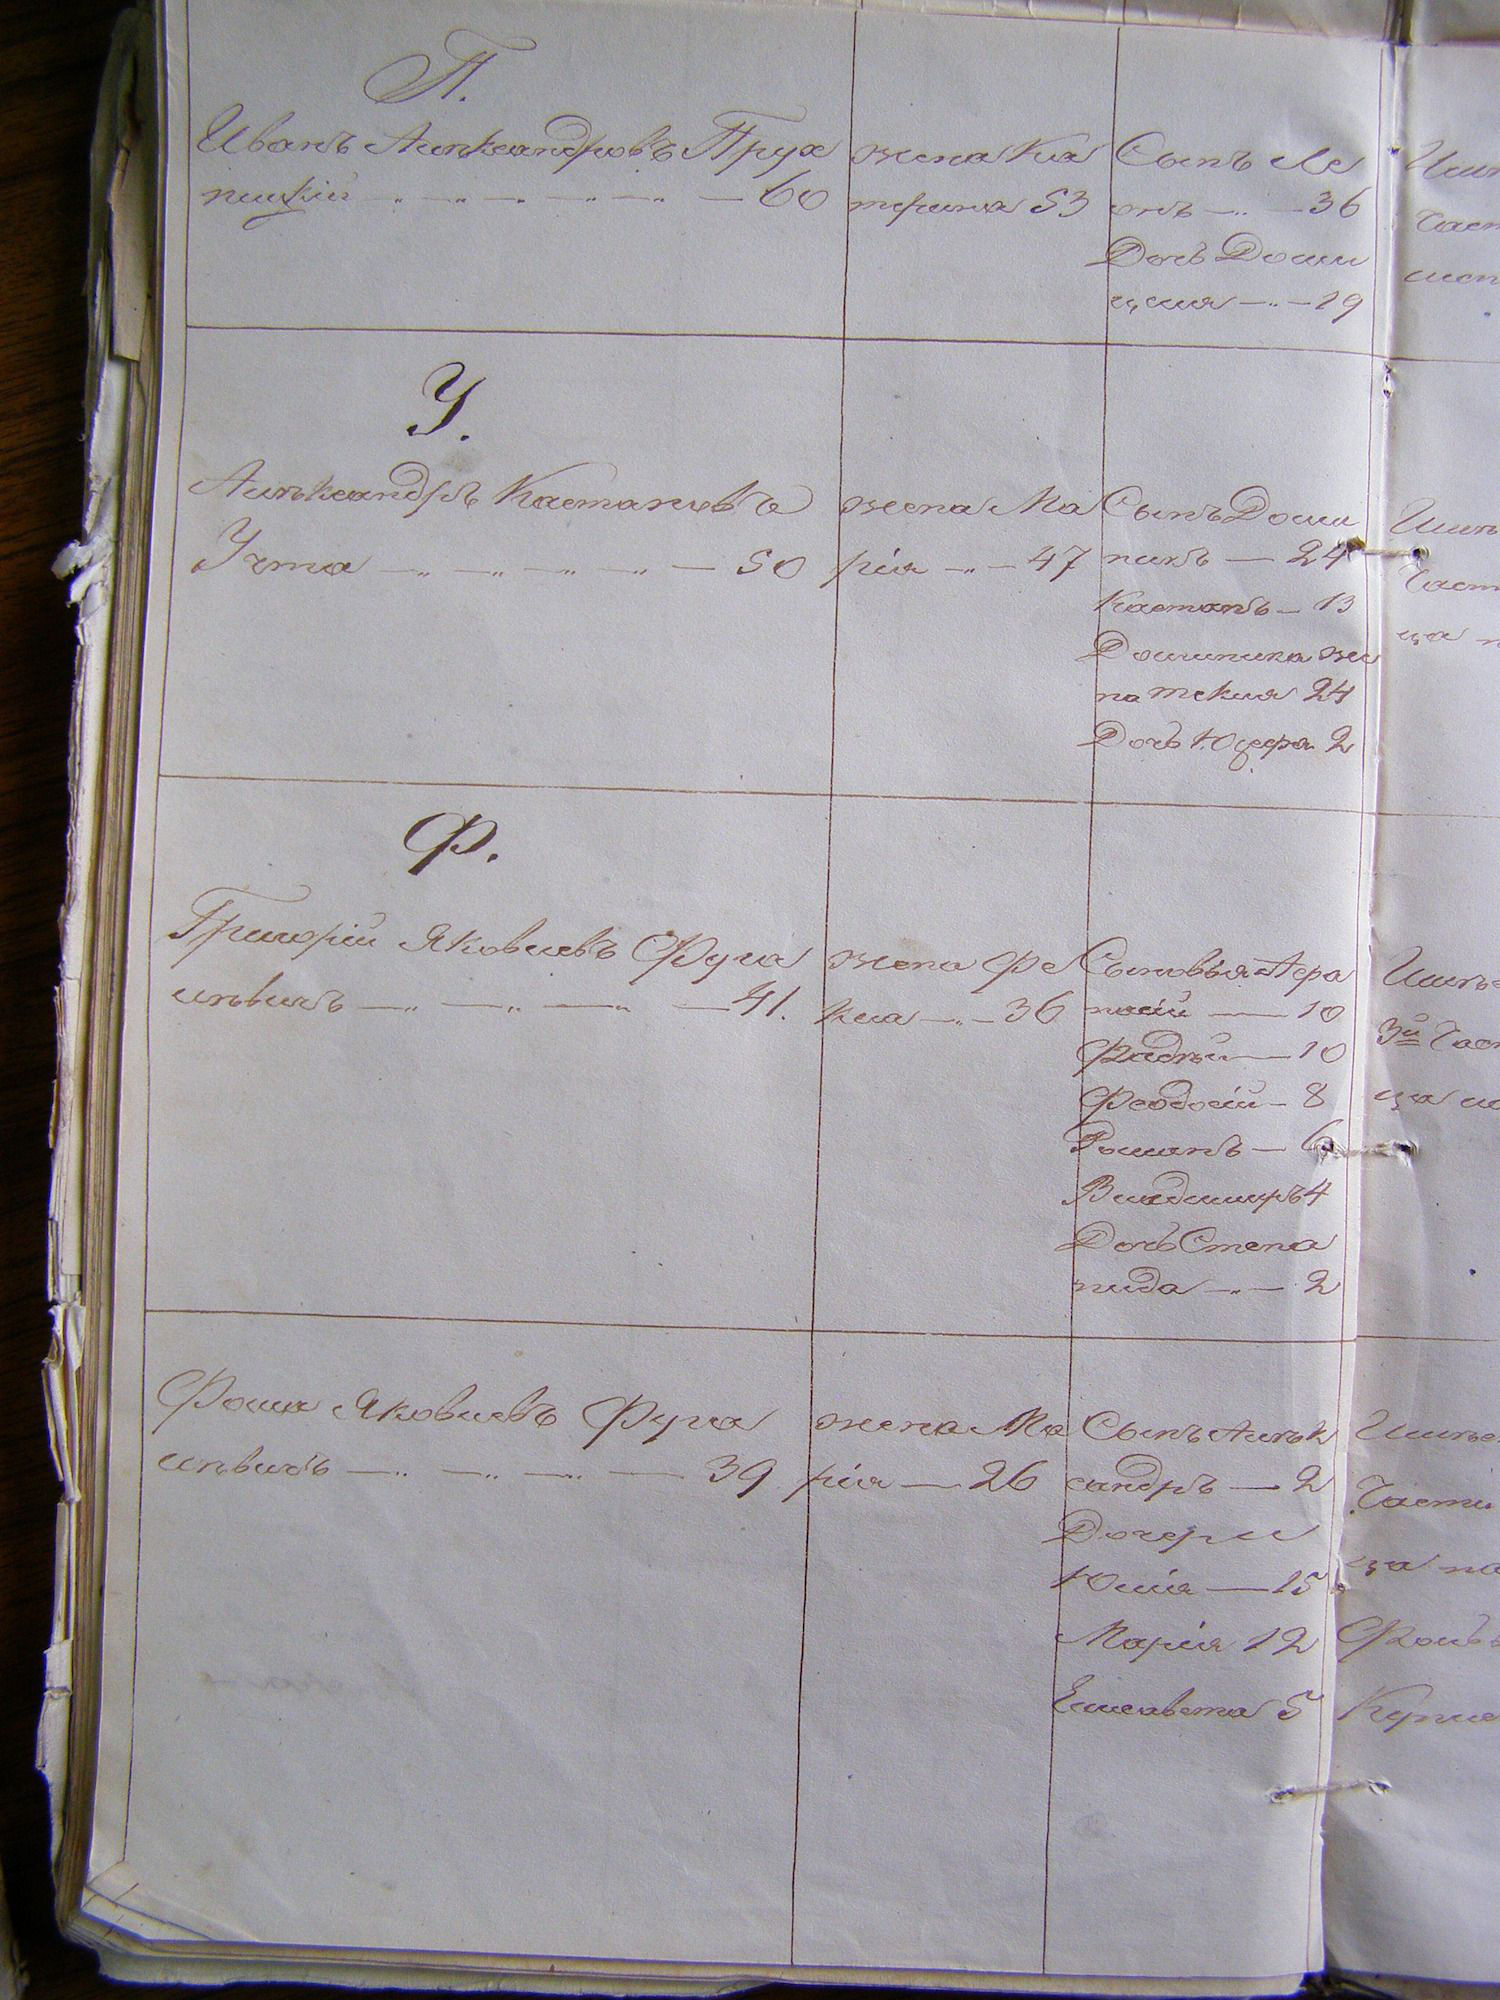 П.
Иванъ Алѣксандровъ Прух
ницкій — 60
жена Ка
терина 53
Сынъ Ле
онъ — 36
Дочь Доми
целя — 19
У.
Алѣксандръ Каетановъ
Учта — 50
жена Ма
рія — 47
Сынъ Доми
никъ — 24
Каетанъ — 13
Доминика же
на Текля 24
Дочь Юзефа 2
Ф.
Григорій Яковлевъ Фула
— 41.
жена Фе
кла — 36
Сыновья Афа
насій — 10
Фадѣй — 10
Феодосій — 8
Романъ — 6
Владимиръ 4
Дочь Степа
нида — 2
3й Част
Фома Яковлевъ Фула
— 39
жена Ма
рія — 26
Сынъ Алѣк
сандръ — 2
Дочери
Юлія — 15
Марія 12
Елисавета 5
Части
ца по